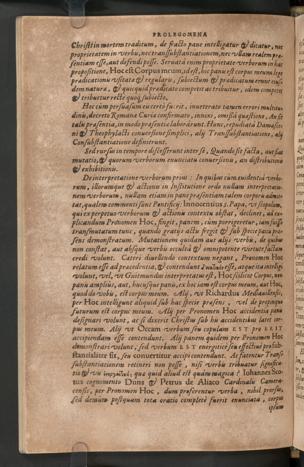 PROLEGOMENA
Christi in mortem traditum, de facto pane intelligatur & dicatur, nec
proprietatem in verbo, nec transsubstantiationem, nec ullam realem præ-
sentiam esse, aut defendi posse. Servata enim proprietate verborum in hac
propositione, Hoc est Corpus meum, id est, hic panis est corpus meum lege
prædicationis usitata & regulari, subjectum & prædicatum ejus-
dem natura, & quicquid prædicato competit ac tribuitur, idem competit
& tribuitur recte quoq; subjecto.
Hoc cum persuasum exteris fuerit, inveterato tamen errori
decreto Romanæ Curiæ confirmato, omnes, omissa quæstione, An sit
talis præsentia, in modo præsentiæ laborarunt. Hanc, repudiata Damasce-
ni & Theophylacti conversione simplici, alij Transsubstantiatione, alij
Consubstantiatione definierunt.
Sed rursus in tempore dissenserunt inter se, Quando sit facta,
mutatio, & quorum verborum enuntiatu conversionis, an distributione
& exhibitionis.
De interpretatione verborum
rum, illorumque & actionis in Institutione ordo nullam interpretatio-
nem verborum, nullam etiam in pane præsentiam talem corporis admit-
tat, qualem comminiscuntur Pontificij; Innocentius 3. Papa,
qui ex perpetuo verborum & actionum contextu obstat, declinet, ad ex-
plicandum Pronomen Hoc, fingit, panem, cum porrigeretur, jam fuisse
transmutatum tunc, quando gratijs actis fregit & sub specie panis præ-
sens demonstratum. Mutationem quidem aut alijs verbis, de quibus
non constat, aut absque verbis occulta & omnipotente virtute factam
credi volunt. Cateri diuellendo contextum negant, Pronomen Hoc
relatum esse ad præcedentia, & contendunt
volunt, vel, ut Guitmundus interpretatus est, Hoc, scilicet Corpus, non
panis amplius, aut, hucusque panis, ex hoc jam est corpus meum, aut Hoc,
quod do vobis, est corpus meum. Alij, ut Richardus Mediavillensis,
per Hoc intelligunt aliquid sub hac specie præsens, vel de proximo
futurum est corpus meum. Alij per Pronomen Hoc accidentia panis
designari volunt, ac si dixerit Christus sub his accidentibus latet cor-
pus meum. Alij ut Occam verbum seu copulam EST pro ERIT
accipiendam esse contendunt. Alij panem quidem per Pronomen Hoc
demonstrari volunt, sed verbum EST energetice seu effective pro sub-
stantialiter fit, seu convertitur accipi contendunt. At fatentur Trans-
substantiationem retineri non posse, nisi verbo tribuatur significa-
tio & quid aliud est quam magica? Iohannes Sco-
tus cognomento Duns & Petrus de Aliaco Cardinalis Camera-
censis, per Pronomen Hoc, dum proferuntur verba, nihil prorsus,
sed demum postquam tota oratio complete fuerit enunciata, corpus
ipsum